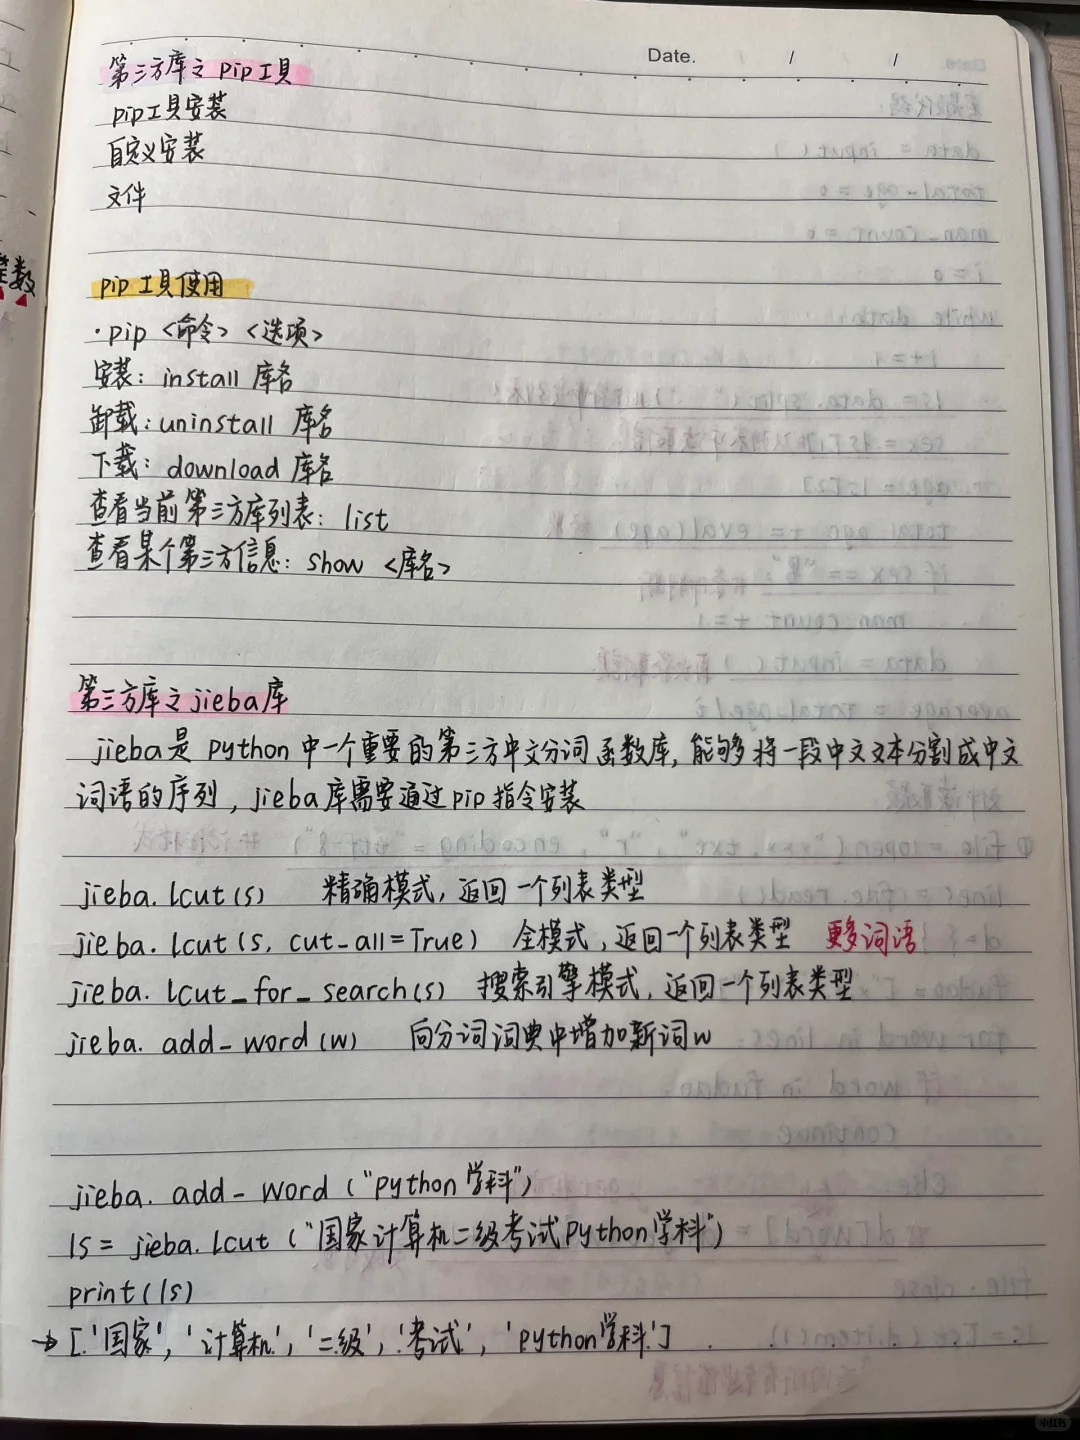 Date. / /
第三方库之 pip工具
pip工具安装
自定义安装
文件
pip 工具使用
·pip <命令> <选项>
安装: install 库名
卸载: uninstall 库名
下载: download 库名
查看当前第三方库列表: list
查看某个第三方信息: show <库名>
第三方库之jieba库
jieba是 python 中一个重要的第三方中文分词函数库, 能够将一段中文文本分割成中文
词语的序列, jieba库需要通过pip指令安装
jieba. lcut(s) 精确模式, 返回一个列表类型
jieba. lcut(s, cut_all=True) 全模式, 返回一个列表类型 更多词语
jieba. lcut_for_search(s) 搜索引擎模式, 返回一个列表类型
jieba. add_word(w) 向分词词典中增加新词w
jieba. add_word("python学科")
ls = jieba.lcut("国家计算机二级考试python学科")
print(ls)
→ ['国家', '计算机', '二级', '考试', 'python学科']
数
小红书